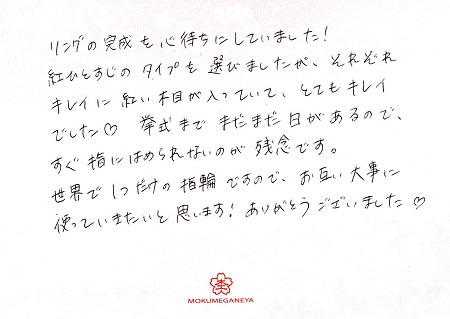 リングの完成を心待ちにしていました!
紅ひとすじのタイプを選びましたが、それぞれ
キレイに紅い木目が入っていて、とてもキレイ
でした♡ 挙式までまだまだ日があるので、
すぐ指にはめられないのが残念です。
世界で1つだけの指輪ですので、お互い大事に
使っていきたいと思います!ありがとうございました♡
MOKUMEGANEYA